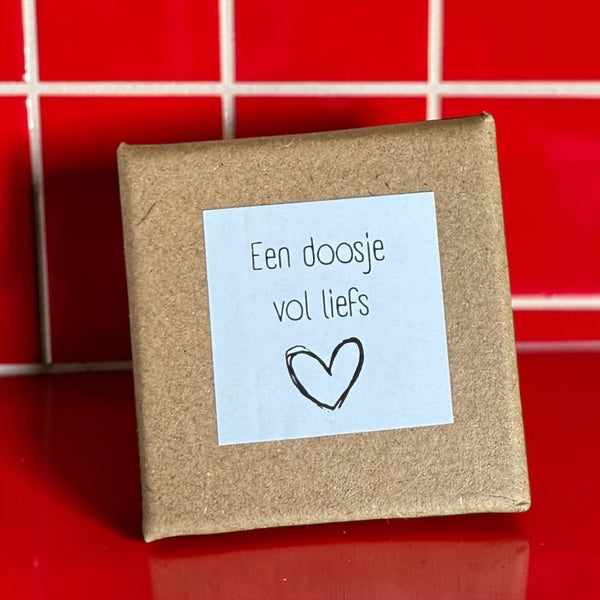 Een doosje
vol liefs